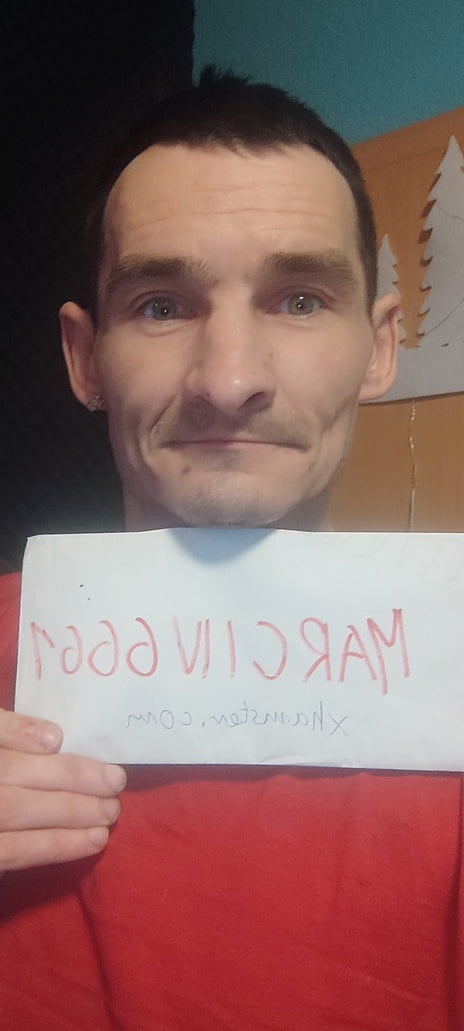 MARCIIV6661
xhamster.com